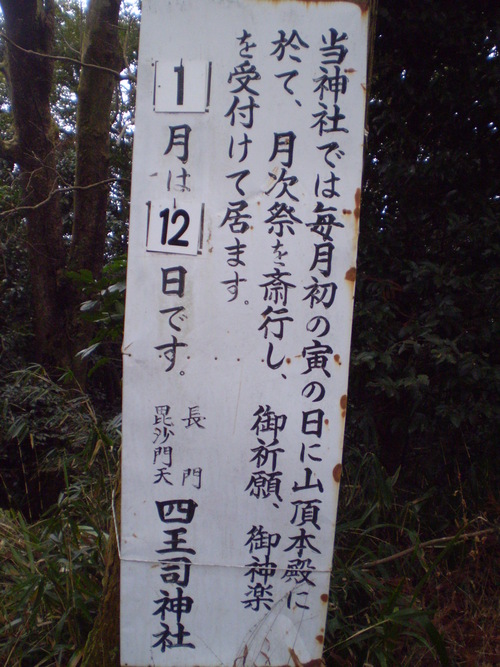 当神社では毎月初の寅の日に山頂本殿に
於て、月次祭を斎行し、御祈願、御神楽
を受付けて居ます。
1月は12日です。
長門
毘沙門天
四王司神社